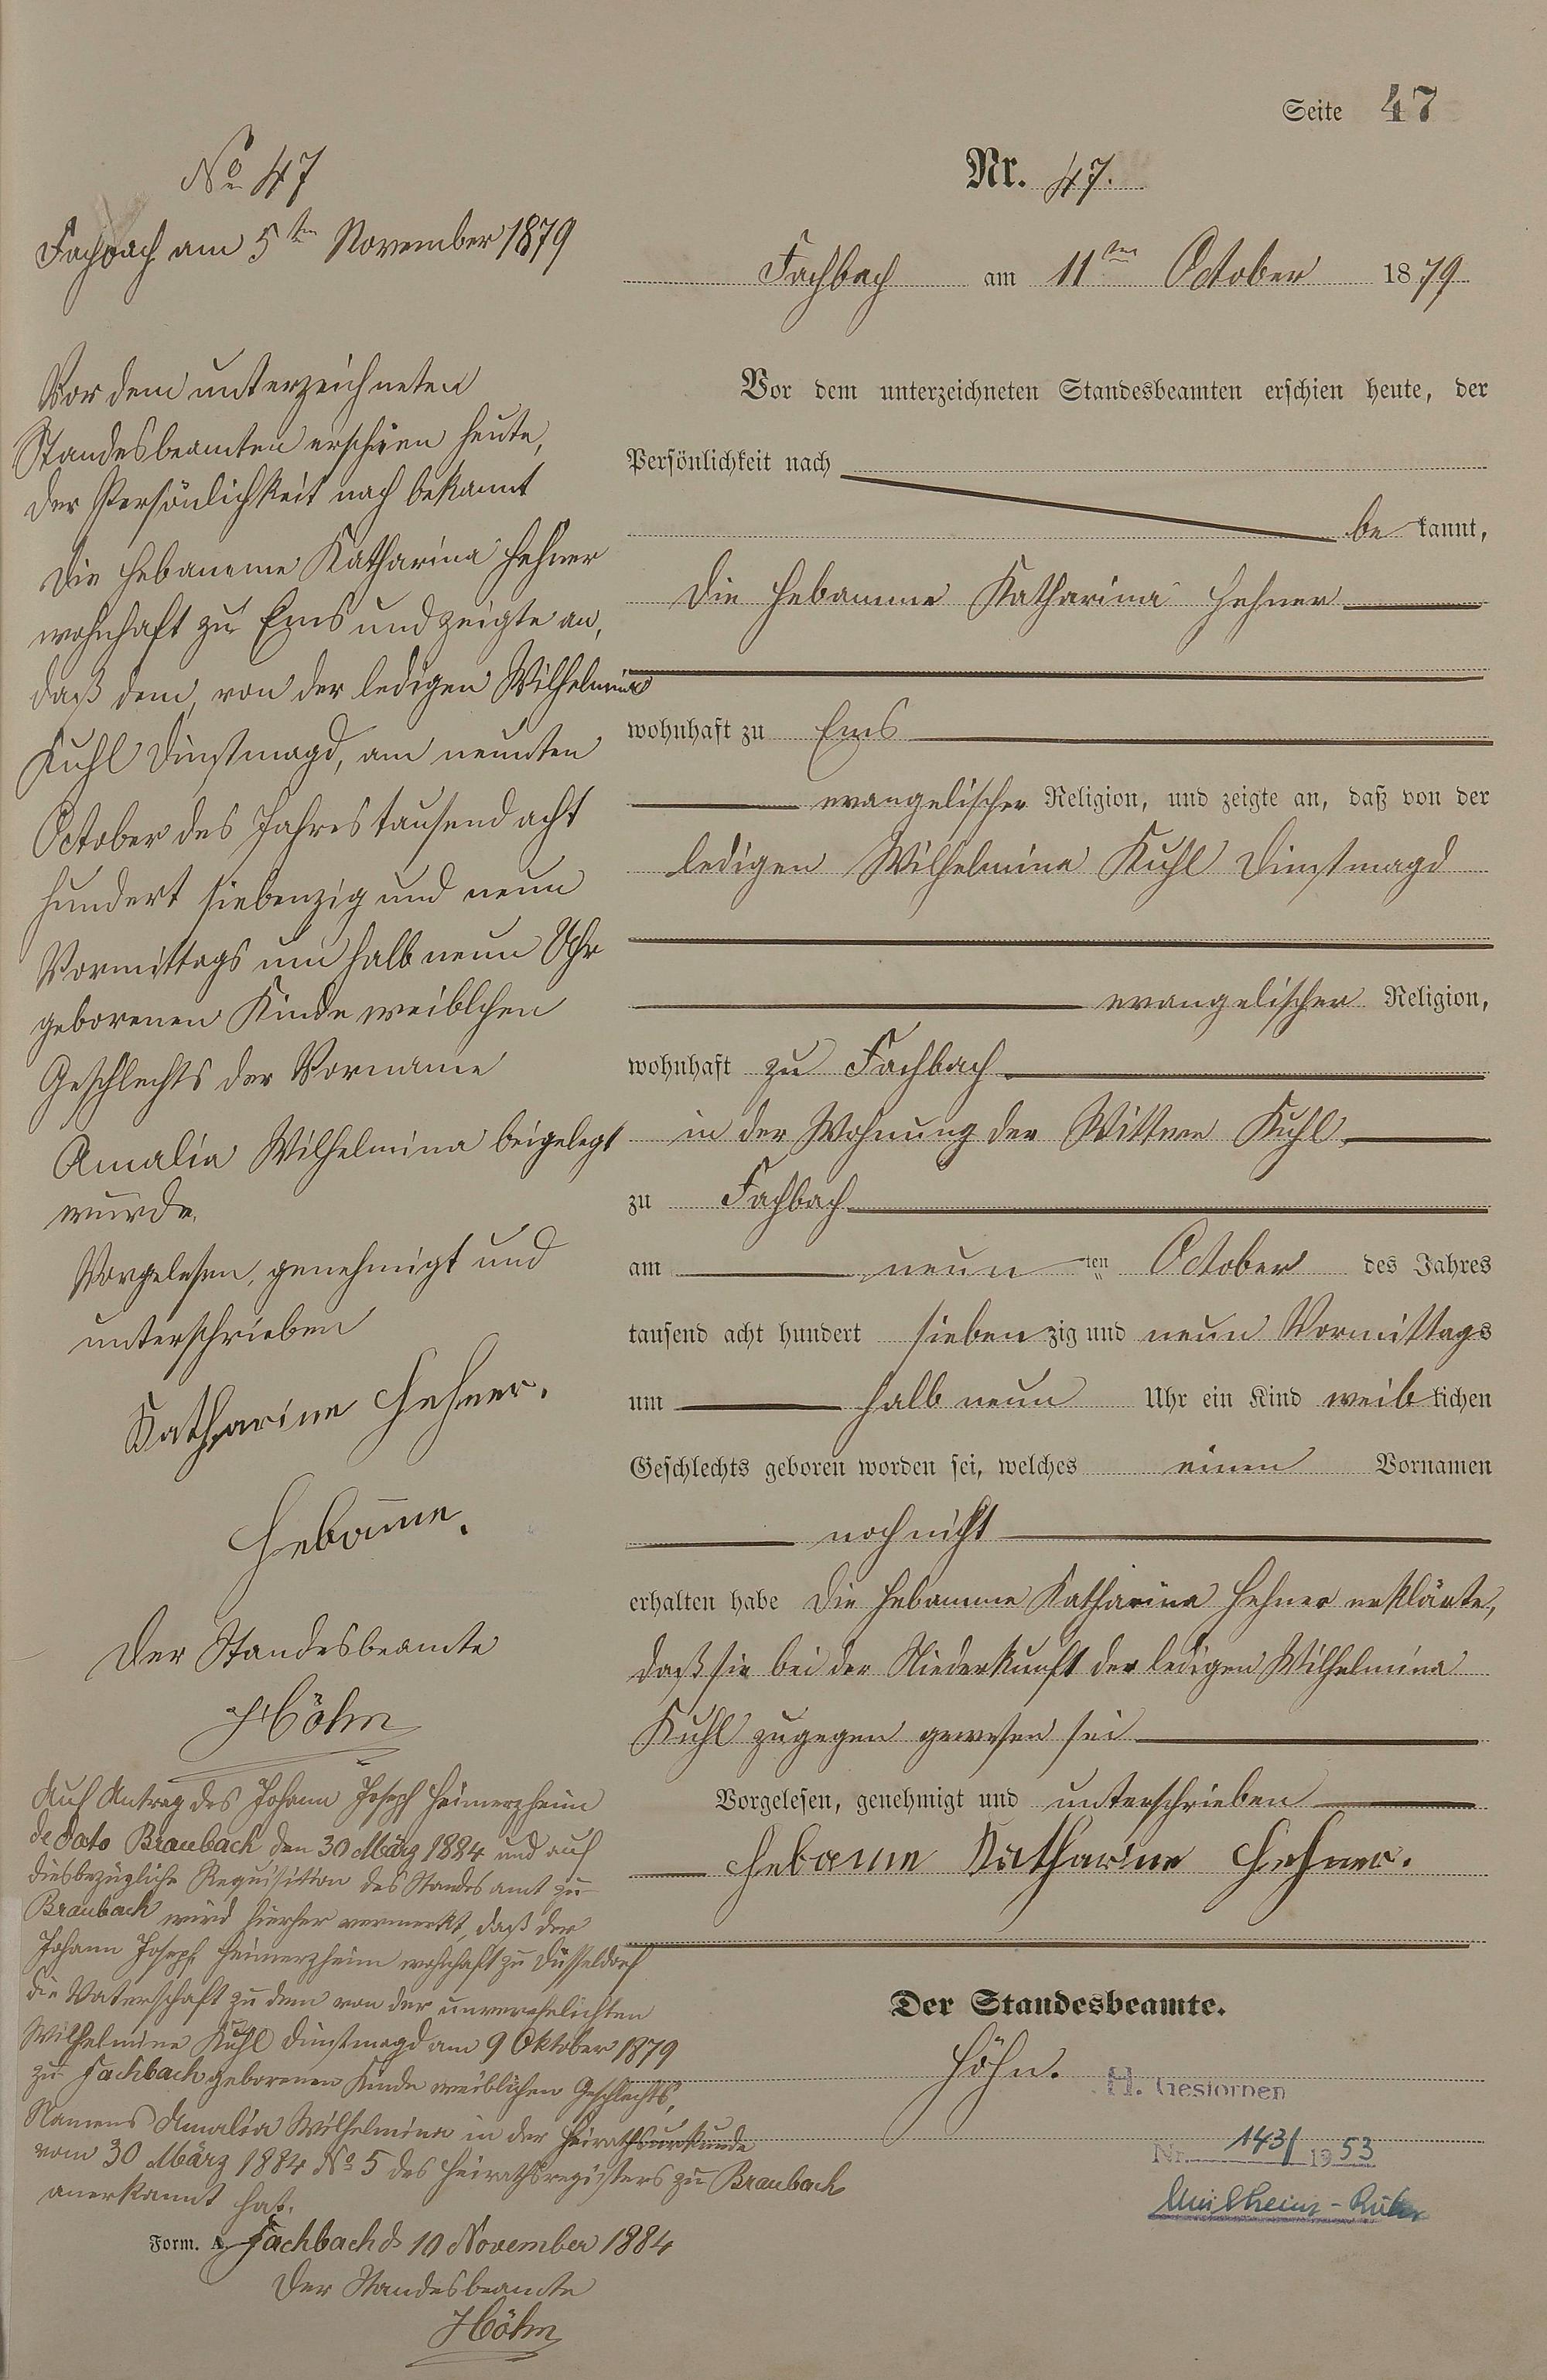 Seite 47
Nr. 47.
Fachbach am 11ten October 1879
Vor dem unterzeichneten Standesbeamten erschien heute, der
Persönlichkeit nach
be kannt,
die Hebamme Katharina Hehner
wohnhaft zu Ems
evangelischer Religion, und zeigte an, daß von der
ledigen Wilhelmina Kuhl Dinstmagd
evangelischer Religion,
wohnhaft zu Fachbach
in der Wohnung der Wittwe Kuhl
zu Fachbach
am neun ten October des Jahres
tausend acht hundert sieben zig und neun Vormittags
um halb neun Uhr ein Kind weib lichen
Geschlechts geboren worden sei, welches einen Vornamen
noch nicht
erhalten habe Die Hebamme Katharina Hehner erklärte,
daß sie bei der Niederkunft der ledigen Wilhelmina
Kuhl zugegen gewesen sei
Vorgelesen, genehmigt und unterschrieben
Hebame Katharine Hehner.
Der Standesbeamte.
Höhn.
H. Gestorben
Nr. 1431 1953
Mülheim-Ruhr
No 47
Fachbach am 5ten November 1879
Vor dem unterzeichneten
Standesbeamten erschien heute,
der Persönlichkeit nach bekannt
die Hebamme Katharina Hehner
wohnhaft zu Ems und zeigte an,
daß dem, von der ledigen Wilhelmina
Kuhl Dinstmagd, am neunten
October des Jahres tausend acht
hundert siebenzig und neun
Vormittags um halb neun Uhr
geborenen Kinde weiblchen
Geschlechts der Vorname
Amalia Wilhelmina beigelegt
wurde.
Vorgelesen, genehmigt und
unterschrieben
Katharine Hehner.
Hebame.
Der Standesbeamte
Höhn
Auf Antrag des Johann Joseph Heimerzheim
de dato Braubach den 30 März 1884 und auf
diesbezügliche Requisition des Standesamt zu
Braubach wird hierher vermerkt, daß der
Johann Joseph Heimerzheim wohnhaft zu Düsseldorf
die Vaterschaft zu dem von der unverehelichten
Wilhelmine Kuhl Dinstmagd am 9 Oktober 1879
zu Fachbach geborenen Kinde weiblichen Geschlechts,
Namens Amalia Wilhelmina in der Heirathsurkunde
vom 30 März 1884 No 5 des Heirathsregisters zu Braubach
anerkannt hat.
Form. A. Fachbach d 10 November 1884
Der Standesbeamte
Höhn